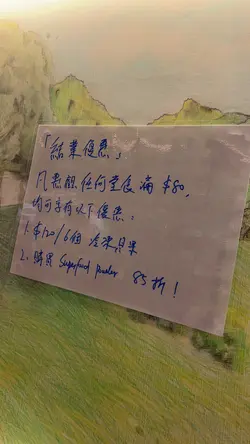 「結業優惠」
凡惠顧任何堂食滿 $80,
均可享有以下優惠:
1. $120/6個 冷果
2. 購買 Superfood powder 85折!